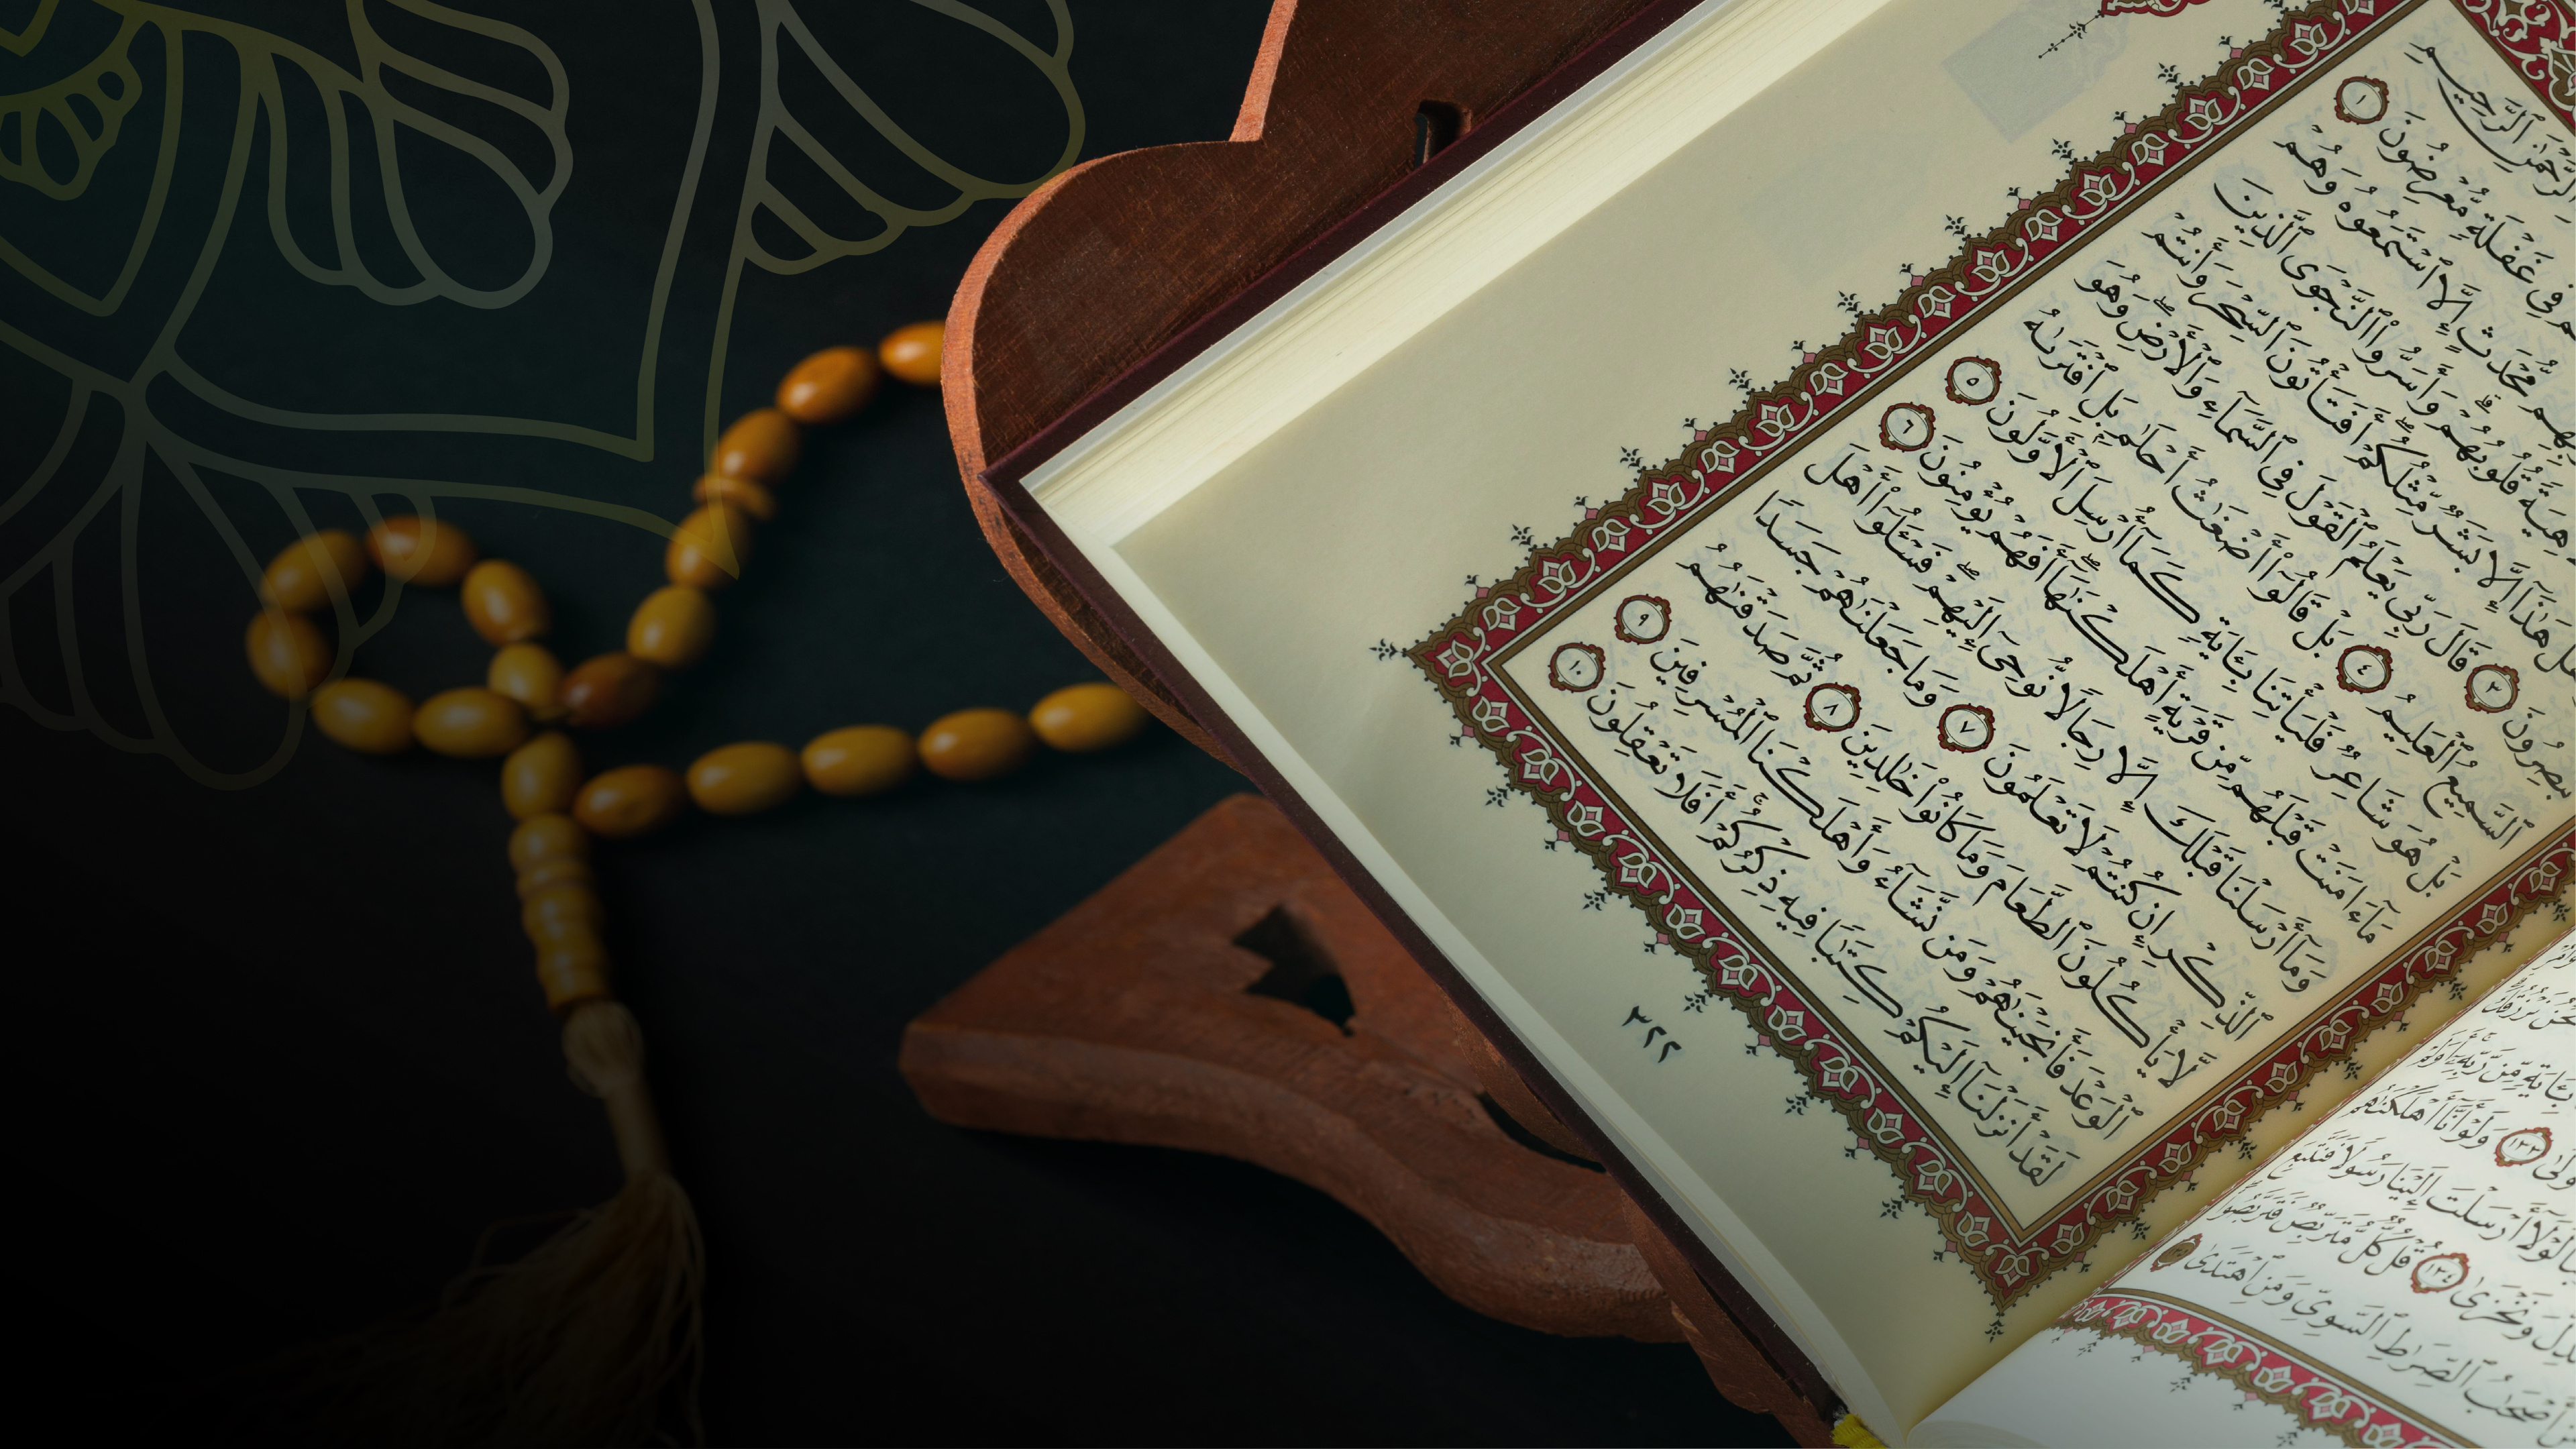 ٱلرَّحِيمِ
فِى غَفْلَةٍ مُّعْرِضُونَ ١
مُّحْدَثٍ إِلَّا ٱسْتَمَعُوهُ وَهُمْ
قُلُوبُهُمْ ۗ وَأَسَرُّوا۟ ٱلنَّجْوَى ٱلَّذِينَ
هَلْ هَٰذَآ إِلَّا بَشَرٌ مِّثْلُكُمْ ۖ أَفَتَأْتُونَ ٱلسِّحْرَ وَأَنتُمْ
٣ قَالَ رَبِّى يَعْلَمُ ٱلْقَوْلَ فِى ٱلسَّمَآءِ وَٱلْأَرْضِ ۖ وَهُوَ
ٱلسَّمِيعُ ٱلْعَلِيمُ ٤ بَلْ قَالُوٓا۟ أَضْغَٰثُ أَحْلَٰمٍۭ بَلِ ٱفْتَرَىٰهُ
بَلْ هُوَ شَاعِرٌ فَلْيَأْتِنَا بِـَٔايَةٍ كَمَآ أُرْسِلَ ٱلْأَوَّلُونَ ٥
مَآ ءَامَنَتْ قَبْلَهُم مِّن قَرْيَةٍ أَهْلَكْنَٰهَآ ۖ أَفَهُمْ يُؤْمِنُونَ ٦
وَمَآ أَرْسَلْنَا قَبْلَكَ إِلَّا رِجَالًا نُّوحِىٓ إِلَيْهِمْ ۖ فَسْـَٔلُوٓا۟ أَهْلَ
ٱلذِّكْرِ إِن كُنتُمْ لَا تَعْلَمُونَ ٧ وَمَا جَعَلْنَٰهُمْ جَسَدًا
لَّا يَأْكُلُونَ ٱلطَّعَامَ وَمَا كَانُوا۟ خَٰلِدِينَ ٨ ثُمَّ صَدَقْنَٰهُمُ
ٱلْوَعْدَ فَأَنجَيْنَٰهُمْ وَمَن نَّشَآءُ وَأَهْلَكْنَا ٱلْمُسْرِفِينَ ٩
لَقَدْ أَنزَلْنَآ إِلَيْكُمْ كِتَٰبًا فِيهِ ذِكْرُكُمْ ۖ أَفَلَا تَعْقِلُونَ ١٠
٣٢٢
نَّحْنُ نَرْزُقُكَ
بِـَٔايَةٍ مِّن رَّبِّهِۦٓ ۚ أَوَلَمْ
١٣٣ وَلَوْ أَنَّآ أَهْلَكْنَٰهُم
لَوْلَآ أَرْسَلْتَ إِلَيْنَا رَسُولًا فَنَتَّبِعَ
وَنَخْزَىٰ ١٣٤ قُلْ كُلٌّ مُّتَرَبِّصٌ فَتَرَبَّصُوا۟
أَصْحَٰبُ ٱلصِّرَٰطِ ٱلسَّوِىِّ وَمَنِ ٱهْتَدَىٰ